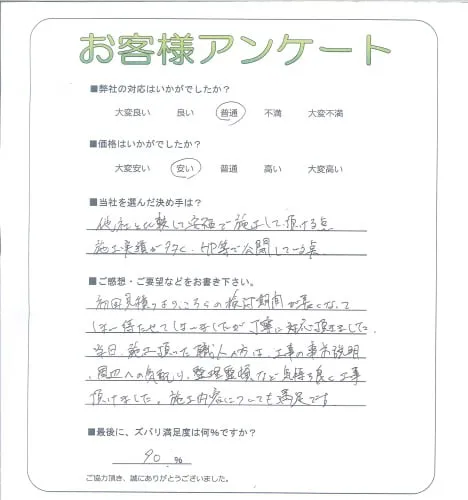 お客様アンケート
■弊社の対応はいかがでしたか？
大変良い 良い 普通 不満 大変不満
■価格はいかがでしたか？
大変安い 安い 普通 高い 大変高い
■当社を選んだ決め手は？
他社と比較して安価で施工して頂ける点
施工実績が多く、HP等で公開している点
■ご感想・ご要望などをお書き下さい。
初回見積りより、こちらの検討期間が長くなって
しまい待たせてしまいましたが丁寧に対応頂きました。
当日、施工頂いた職人の方は、工事の事前説明
、周辺への気配り、整理整頓など気持ち良く工事
頂けました。施工内容についても満足です
■最後に、ズバリ満足度は何％ですか？
90 ％
ご協力頂き、誠にありがとうございました。